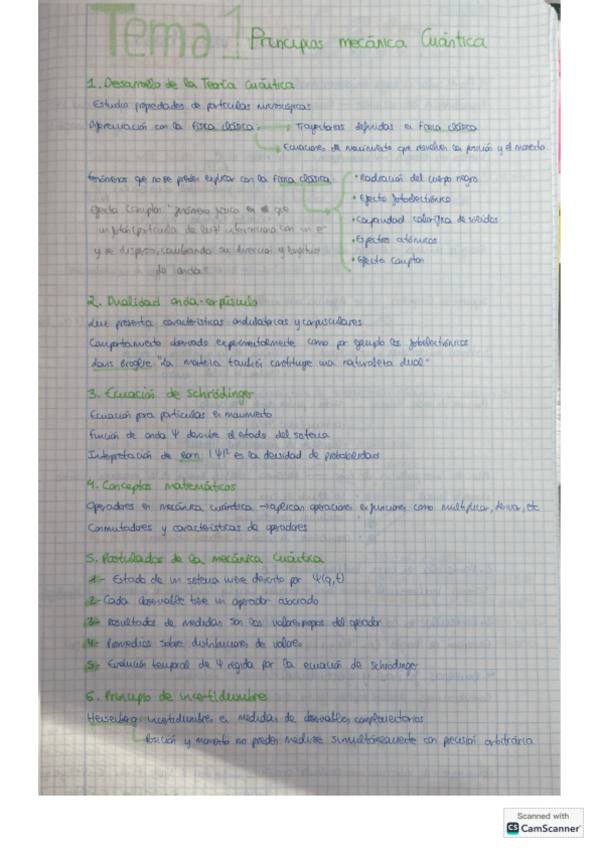 Tema 1 Principios mecánica Cuántica
1. Desarrollo de la Teoría Cuántica
Estudia propiedades de partículas microscópicas
Diferenciación con la Física clásica → Trayectorias definidas en Física clásica
→ Ecuaciones de movimiento que resuelven la posición y el momento
Fenómenos que no se pueden explicar con la Física Clásica:
• Radiación del cuerpo negro
• Efecto fotoeléctrico
• Capacidad calorífica de sólidos
• Espectros atómicos
• Efecto compton
Efecto Compton: "fenómeno físico en el que
un fotón (partícula de luz) interacciona con un e⁻
y se dispersa, cambiando su dirección y longitud
de onda"
2. Dualidad onda-corpúsculo
Luz presenta características ondulatorias y corpusculares
Comportamiento observado experimentalmente como por ejemplo los fotoelectrónicos
Louis Broglie "La materia también constituye una naturaleza dual"
3. Ecuación de Schrödinger
Ecuación para partículas en movimiento
Función de onda Ψ describe el estado del sistema
Interpretación de Born: |Ψ|² es la densidad de probabilidad
4. Conceptos matemáticos
Operadores en mecánica cuántica → aplican operaciones en funciones como multiplicar, derivar, etc
Conmutadores y características de operadores
5. Postulados de la mecánica Cuántica
1- Estado de un sistema viene descrito por Ψ(q,t)
2- Cada observable tiene un operador asociado
3- Resultados de medidas son los valores propios del operador
4- Promedios sobre distribuciones de valores
5- Evolución temporal de Ψ regida por la ecuación de Schrödinger
6. Principio de incertidumbre
Heisenberg: incertidumbre en medidas de observables complementarios
Posición y momento no pueden medirse simultáneamente con precisión arbitraria
Scanned with
CS CamScanner